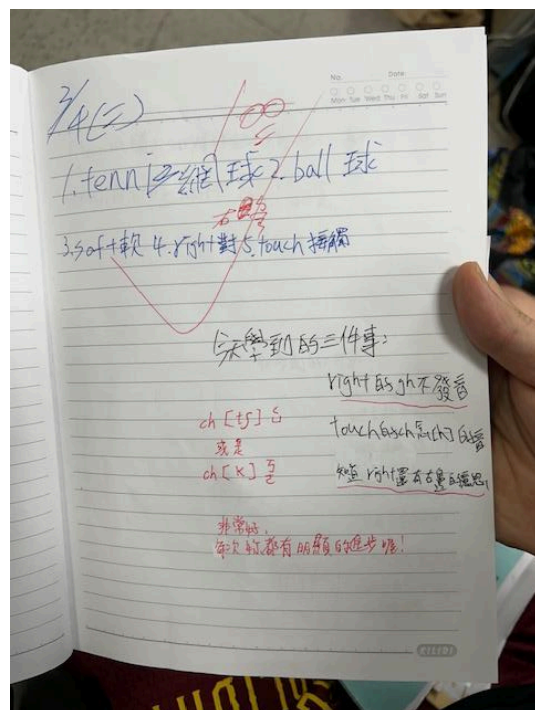 No. Date
Mon Tue Wed Thu Fri Sat Sun
3/4(二)
100
1. tennis 網球 2. ball 球
右邊
3. soft 軟 4. right 對 5. touch 接觸
今天學到的三件事:
right 的gh不發音
ch [tʃ] ㄑ
touch的ch念[ch]的音
或是
ch [K] ㄎ
知道 right還有右邊的意思,
非常好,
每次的都有明顯的進步喔!